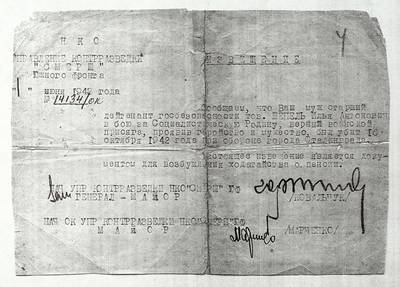 Н К О
УПРАВЛЕНИЕ КОНТРРАЗВЕДКИ
"С М Е Р Ш"
Южного фронта
ИЗВЕЩЕНИЕ
4
июня 1943 года
№ 14134/ок
Сообщаем, что Ваш муж старший
лейтенант госбезопасности тов. Илья Антонович
в бою за Социалистическую Родину, верный воинской
присяге, проявив геройство и мужество, был убит 16
октября 1942 года при обороне города Сталинграда.
Настоящее извещение является доку-
ментом для возбуждения ходатайства о пенсии.
НАЧ УПР КОНТРРАЗВЕДКИ НКО "СМЕРШ" ЮФ
ГЕНЕРАЛ - МАЙОР
/КОВАЛЬЧУК/
НАЧ ОК УПР КОНТРРАЗВЕДКИ НКО "СМЕРШ" ЮФ
М А Й О Р
/МАРЧЕНКО/